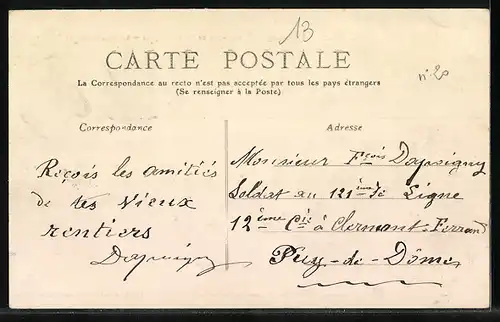 13
CARTE POSTALE
n° 20
La Correspondance au recto n'est pas acceptée par tous les pays étrangers
(Se renseigner à la Poste)
Correspondance
Reçois les amitiés
de tes Vieux
rentiers
Adresse
Monsieur Fçois
Soldat au 121ème de Ligne
12ème Cie à Clermont-Ferrand
Puy-de-Dôme